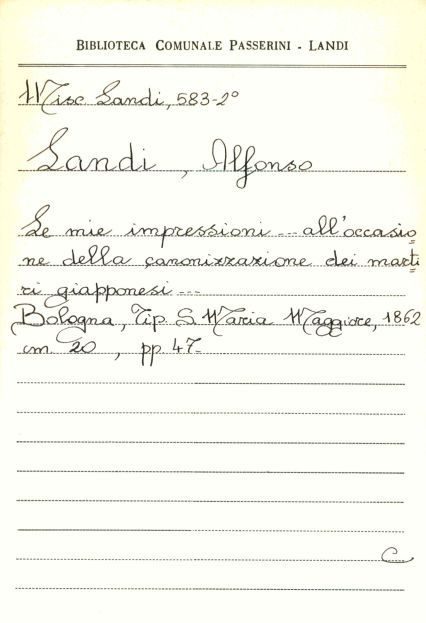 BIBLIOTECA COMUNALE PASSERINI - LANDI
Misc. Landi, 583-2°
Landi, Alfonso
Le mie impressioni ... all'occasio
ne della canonizzazione dei marti
ri giapponesi ...
Bologna, Tip. S. Maria Maggiore, 1862
cm. 20, pp. 47.
C